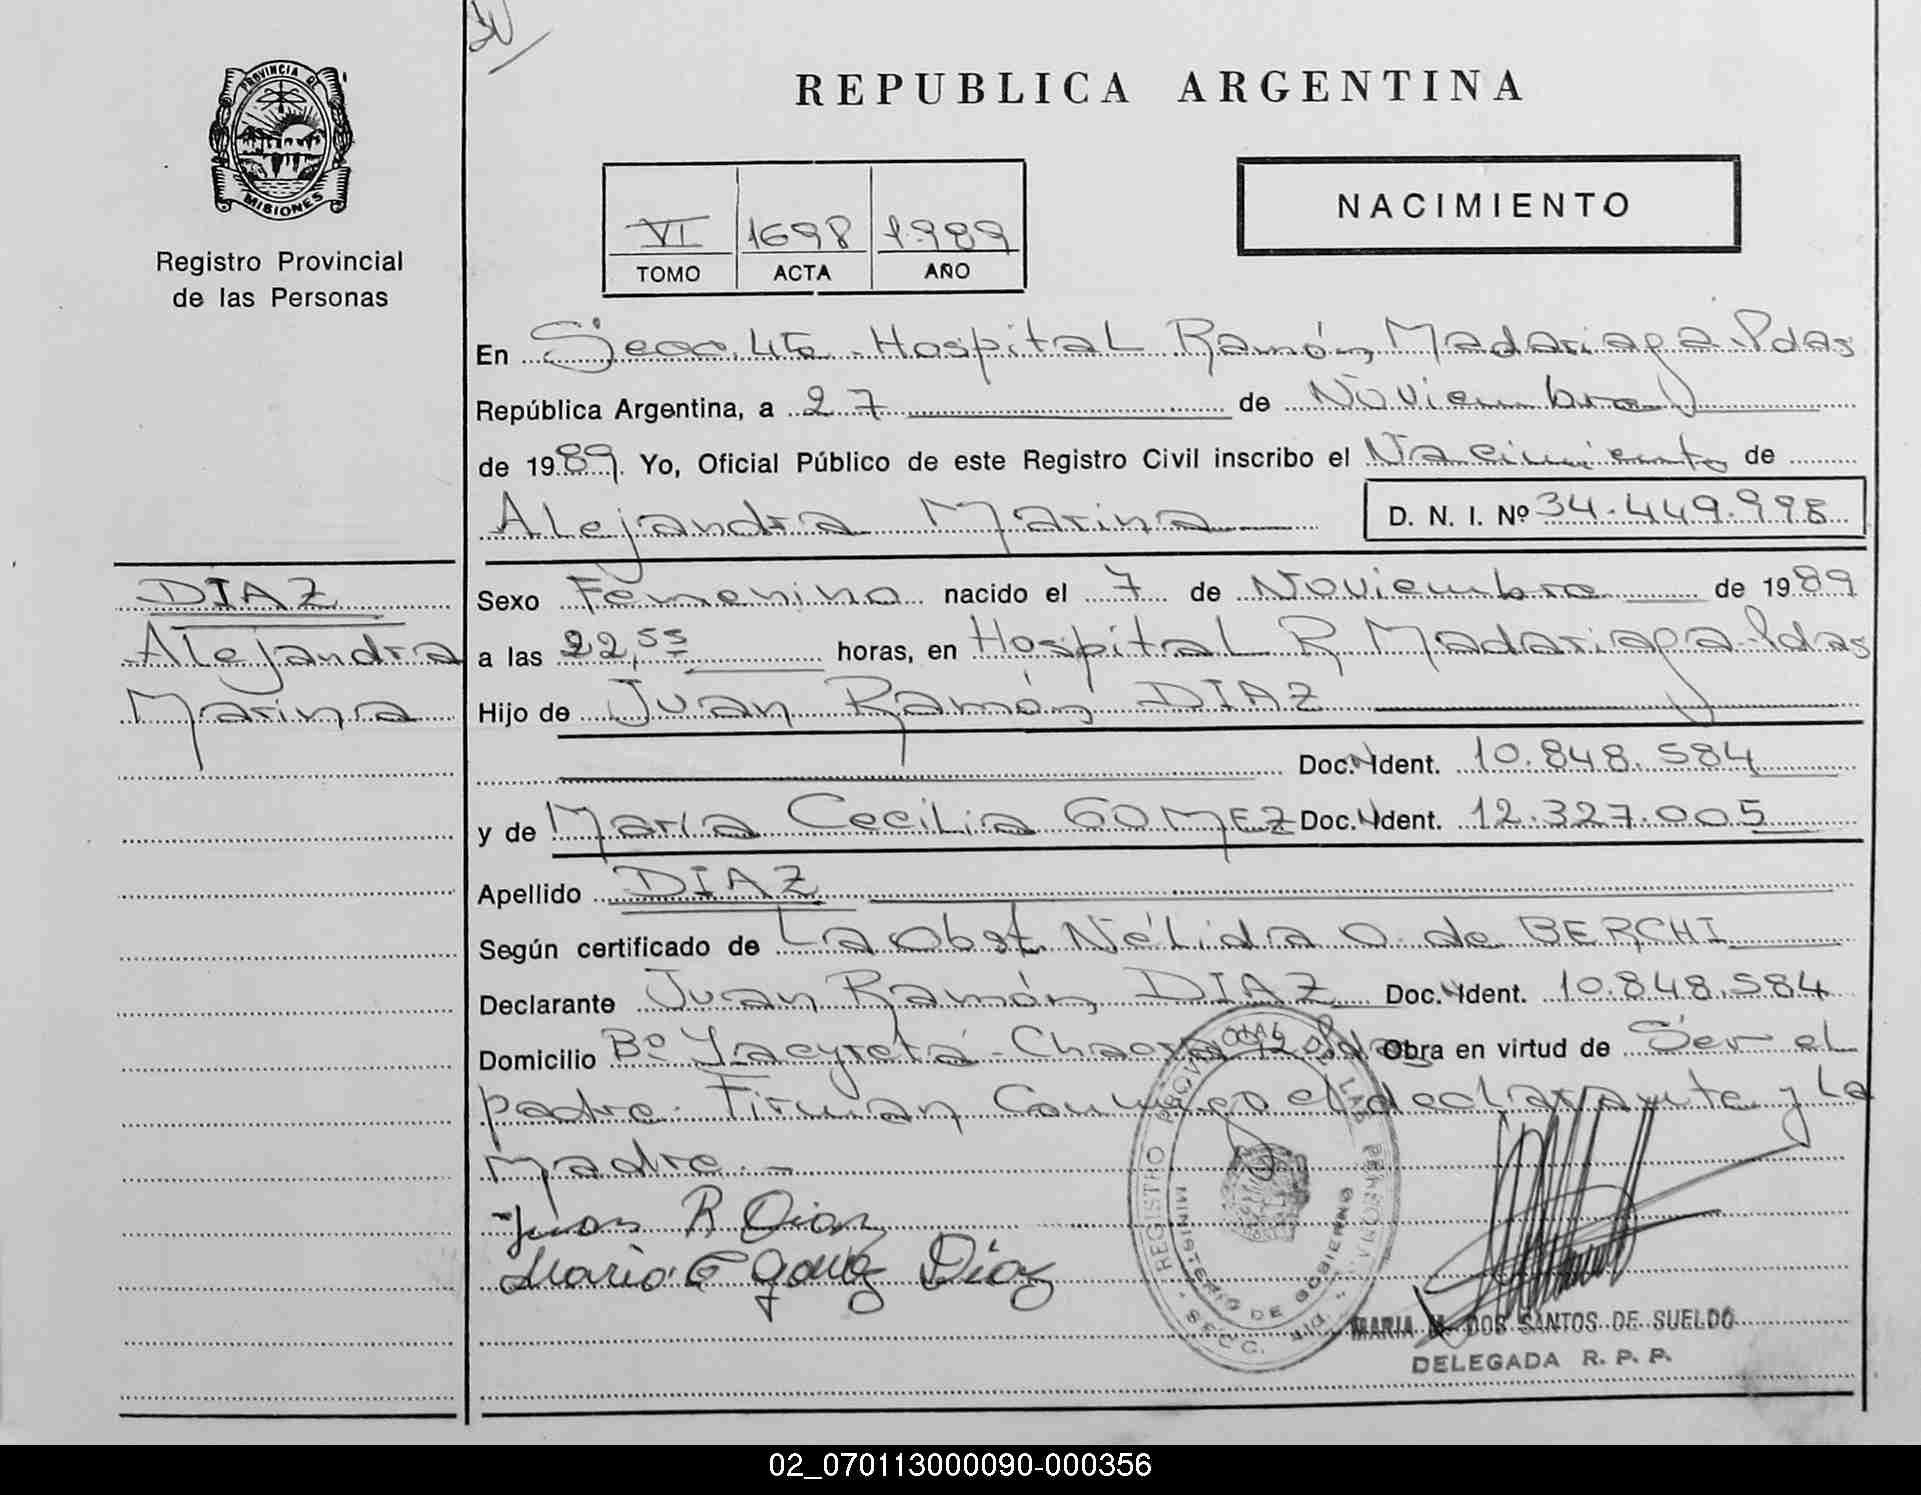 PROVINCIA DE
MISIONES
Registro Provincial
de las Personas
REPUBLICA ARGENTINA
VI 1698 1989
TOMO ACTA AÑO
NACIMIENTO
En Secc. 4ta - Hospital Ramón Madariaga Pdas
República Argentina, a 27 de Noviembre
de 1989. Yo, Oficial Público de este Registro Civil inscribo el Nacimiento de
Alejandra Marina
D. N. I. Nº 34.449.998
DIAZ
Alejandra
Marina
Sexo Femenino nacido el 7 de Noviembre de 1989
a las 22,55 horas, en Hospital R Madariaga-Pdas
Hijo de Juan Ramón DIAZ
Doc. Ident. 10.848.584
y de María Cecilia GOMEZ Doc. Ident. 12.327.005
Apellido DIAZ
Según certificado de La obst. Nélida O. de BERCHI
Declarante Juan Ramón DIAZ Doc. Ident. 10.848.584
Domicilio Bº Yacyretá - Chacra Obra en virtud de Ser el
padre. Firman Conmigo el declarante y La
Madre.-
Juan R Diaz
Maria C Diaz
REGISTRO PROVINCIAL DE LAS PERSONAS
MINISTERIO DE GOBIERNO
SECC.
MARIA DOS SANTOS DE SUELDO
DELEGADA R. P. P.
02_070113000090-000356